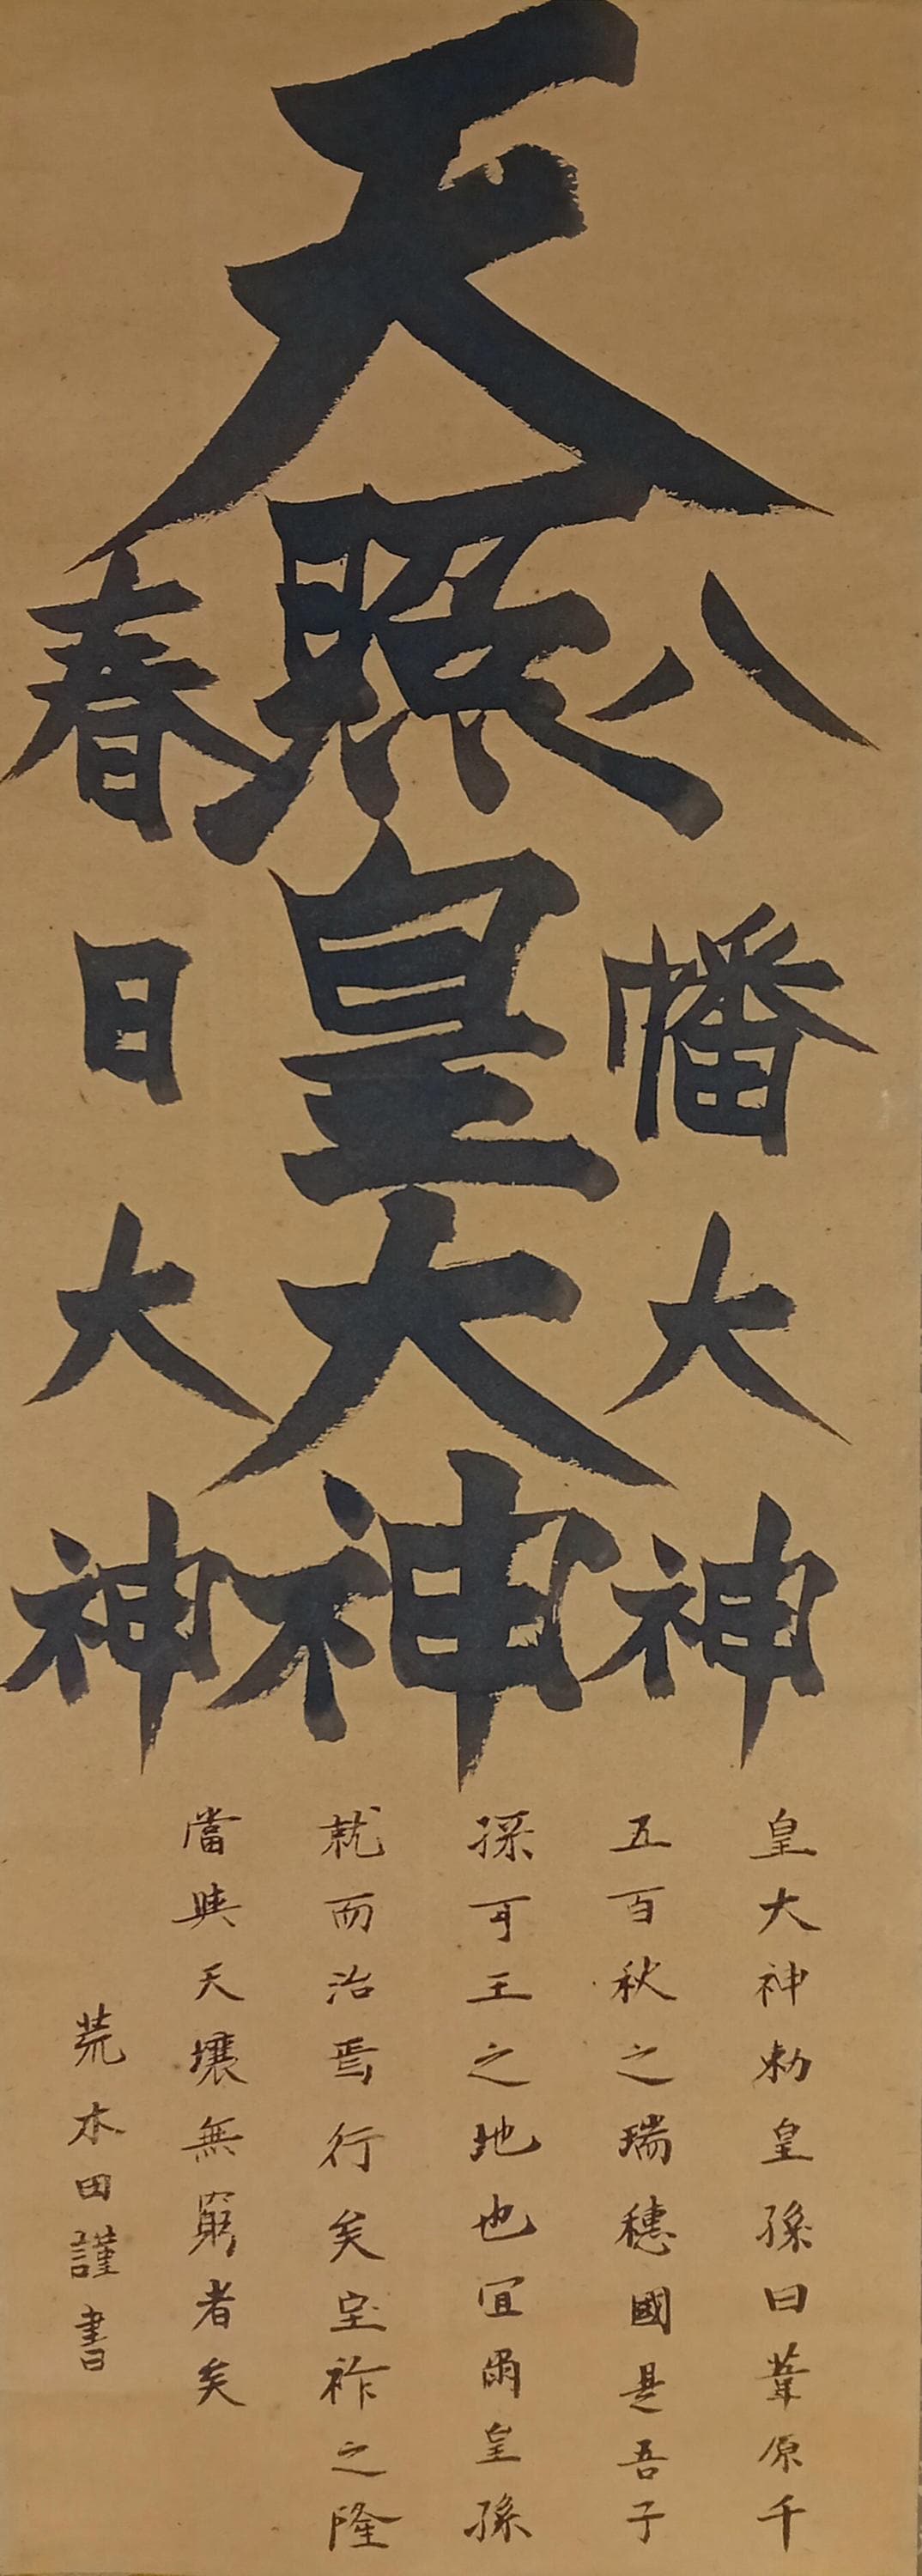 天照皇大神
八幡大神
春日大神
皇大神勅皇孫曰葦原千
五百秋之瑞穗國是吾子
孫可王之地也宜爾皇孫
就而治焉行矣宝祚之隆
當與天壤無窮者矣
荒木田謹書